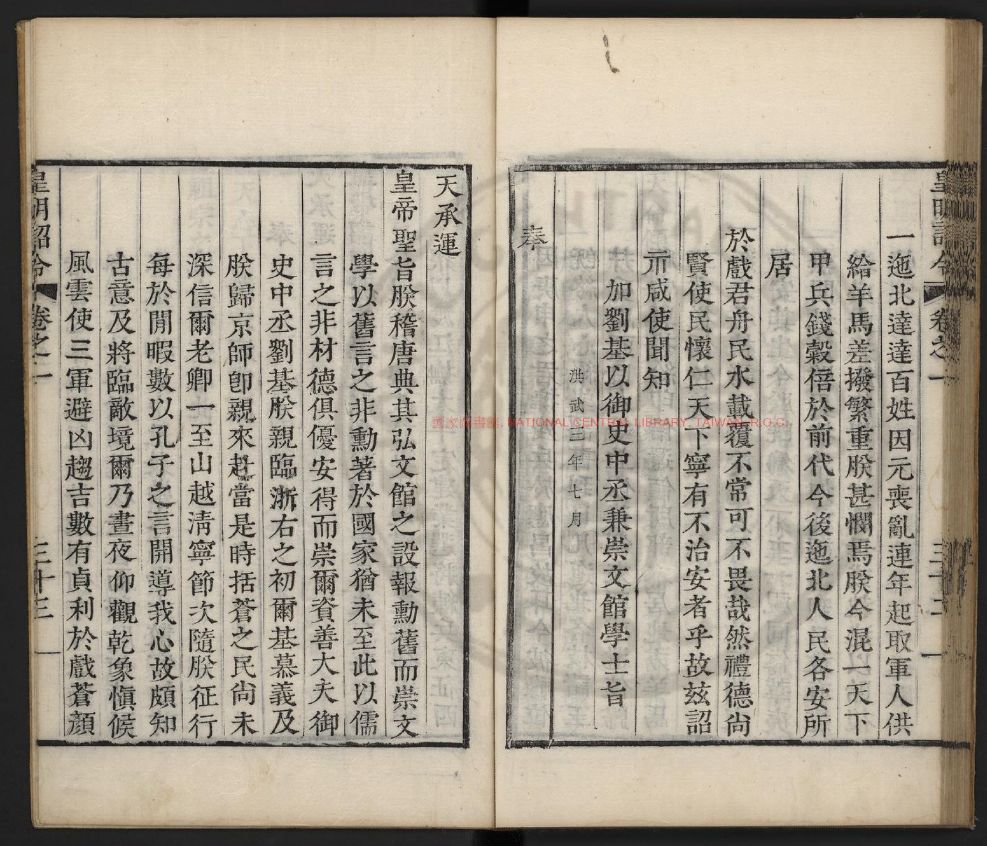 皇明詔令 卷之一 三十三
一迤北達達百姓因元喪亂連年起取軍人供
給羊馬差撥繁重朕甚憫焉朕今混一天下
甲兵錢穀倍於前代今後迤北人民各安所
居
於戲君舟民水載覆不常可不畏哉然禮德尚
賢使民懷仁天下寧有不治安者乎故玆詔
示咸使聞知
加劉基以御史中丞兼崇文館學士旨
洪武三年七月
奉
天承運
皇帝聖旨朕稽唐典其弘文館之設報勳舊而崇文
學以舊言之非勳著於國家猶未至此以儒
言之非材德俱優安得而崇爾資善大夫御
史中丞劉基朕親臨浙右之初爾基慕義及
朕歸京師卽親來赴當是時括蒼之民尙未
深信爾老卿一至山越淸寧節次隨朕征行
每於閒暇數以孔子之言開導我心故頗知
古意及將臨敵境爾乃晝夜仰觀乾象愼候
風雲使三軍避凶趨吉數有貞利於戲蒼顏
皇明詔令 卷之一 三十三
國家圖書館, NATIONAL CENTRAL LIBRARY, TAIWAN, R.O.C.